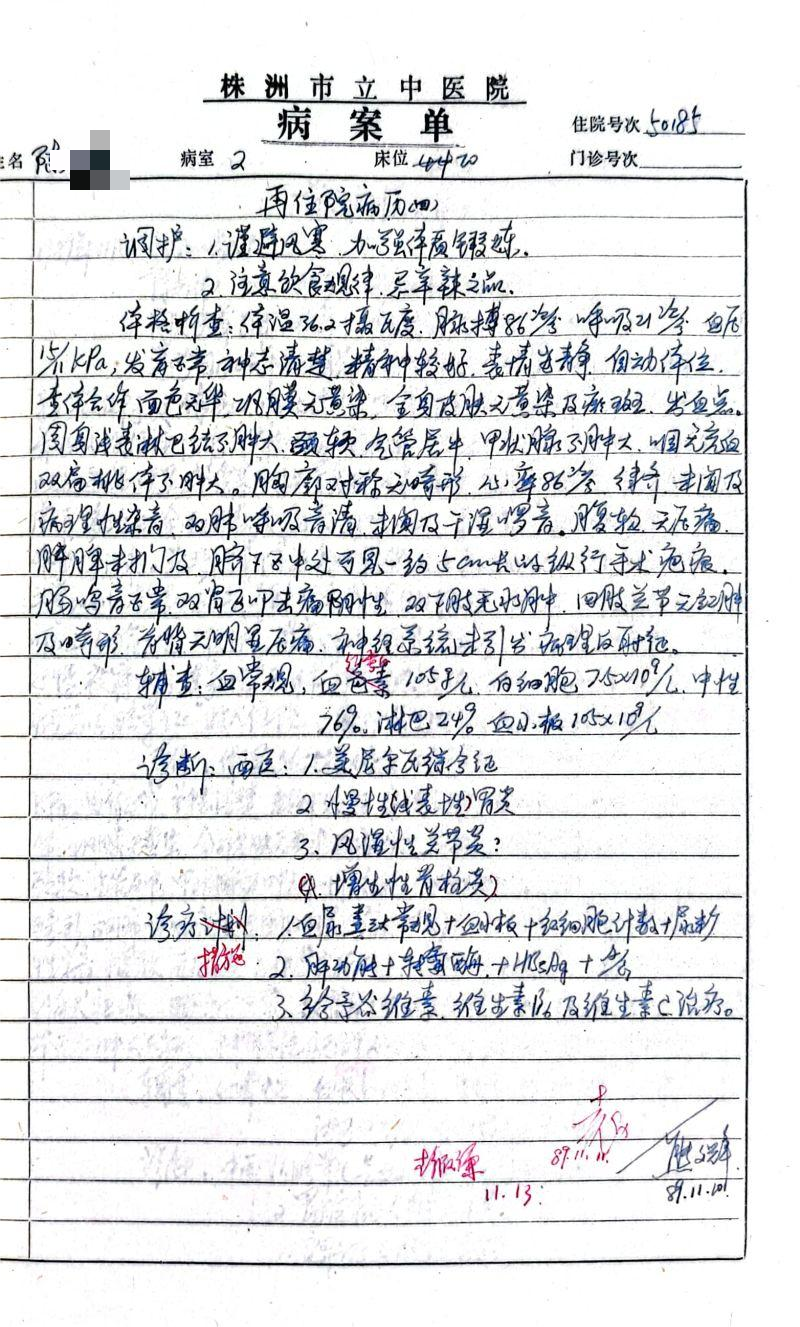 株洲市立中医院
病案单
住院号次 50185
姓名 病室 2 床位 门诊号次
再住院病历(四)
调护：1.谨避风寒，加强体质锻炼。
2.注意饮食规律，忌辛辣之品。
体格检查：体温36.2摄氏度，脉搏86次/分，呼吸21次/分，血压
15/11KPa，发育正常，神志清楚，精神较好，表情安静，自动体位，
查体合作，面色无华，巩膜无黄染，全身皮肤无黄染及瘀斑、出血点。
周身浅表淋巴结不肿大，颈软，气管居中，甲状腺不肿大，咽无充血
双扁桃体不肿大。胸廓对称无畸形，心率86次/分，律齐，未闻及
病理性杂音，双肺呼吸音清，未闻及干湿啰音。腹软，无压痛，
肝脾未扪及，脐下正中处可见一约5cm长的纵行手术疤痕。
肠鸣音正常，双肾区叩击痛阴性，双下肢无水肿，四肢关节无红肿
及畸形，脊椎无明显压痛，神经系统未引出病理反射征。
辅查：血常规，血色素105g/L，白细胞7.5x10⁹/L，中性
76%，淋巴24%，血小板105x10⁹/L
诊断：西医：1.美尼尔氏综合征
2.慢性(浅表性)胃炎
3.风湿性关节炎？
(4.增生性脊柱炎)
诊疗计划：1.血尿大常规+血小板+红细胞计数+尿
措施
2.肝功能+转氨酶+HBsAg+
3.给予谷维素，维生素B₆及维生素C治疗。
89.11.11.
11.13.
89.11.10.